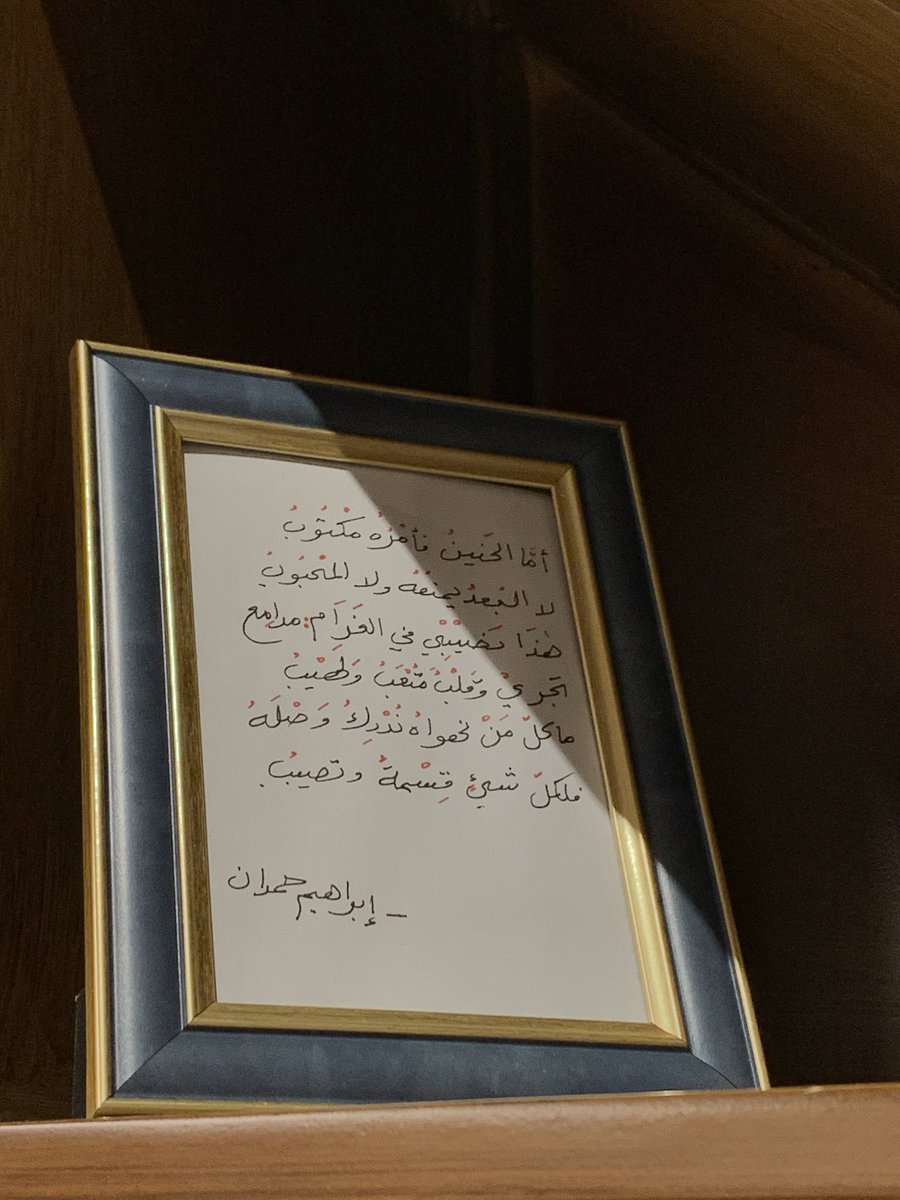 أمَّا الحَنينُ فأمْرُهُ مَكْتُوبُ
لا البُعدُ يمنعُهُ ولا المَحْبُوبُ
هٰذَا نَصِيْبِيْ في الغَرَامِ: مدامِع
تجريْ وقلْبٌ مُتْعَبٌ وَلَهِيْبُ
ما كلّ مَنْ نهواهُ نُدْرِكُ وَصْلَهُ
فلكلّ شيءٍ قِسْمةٌ ونصيبُ
– إبراهيم حمدان